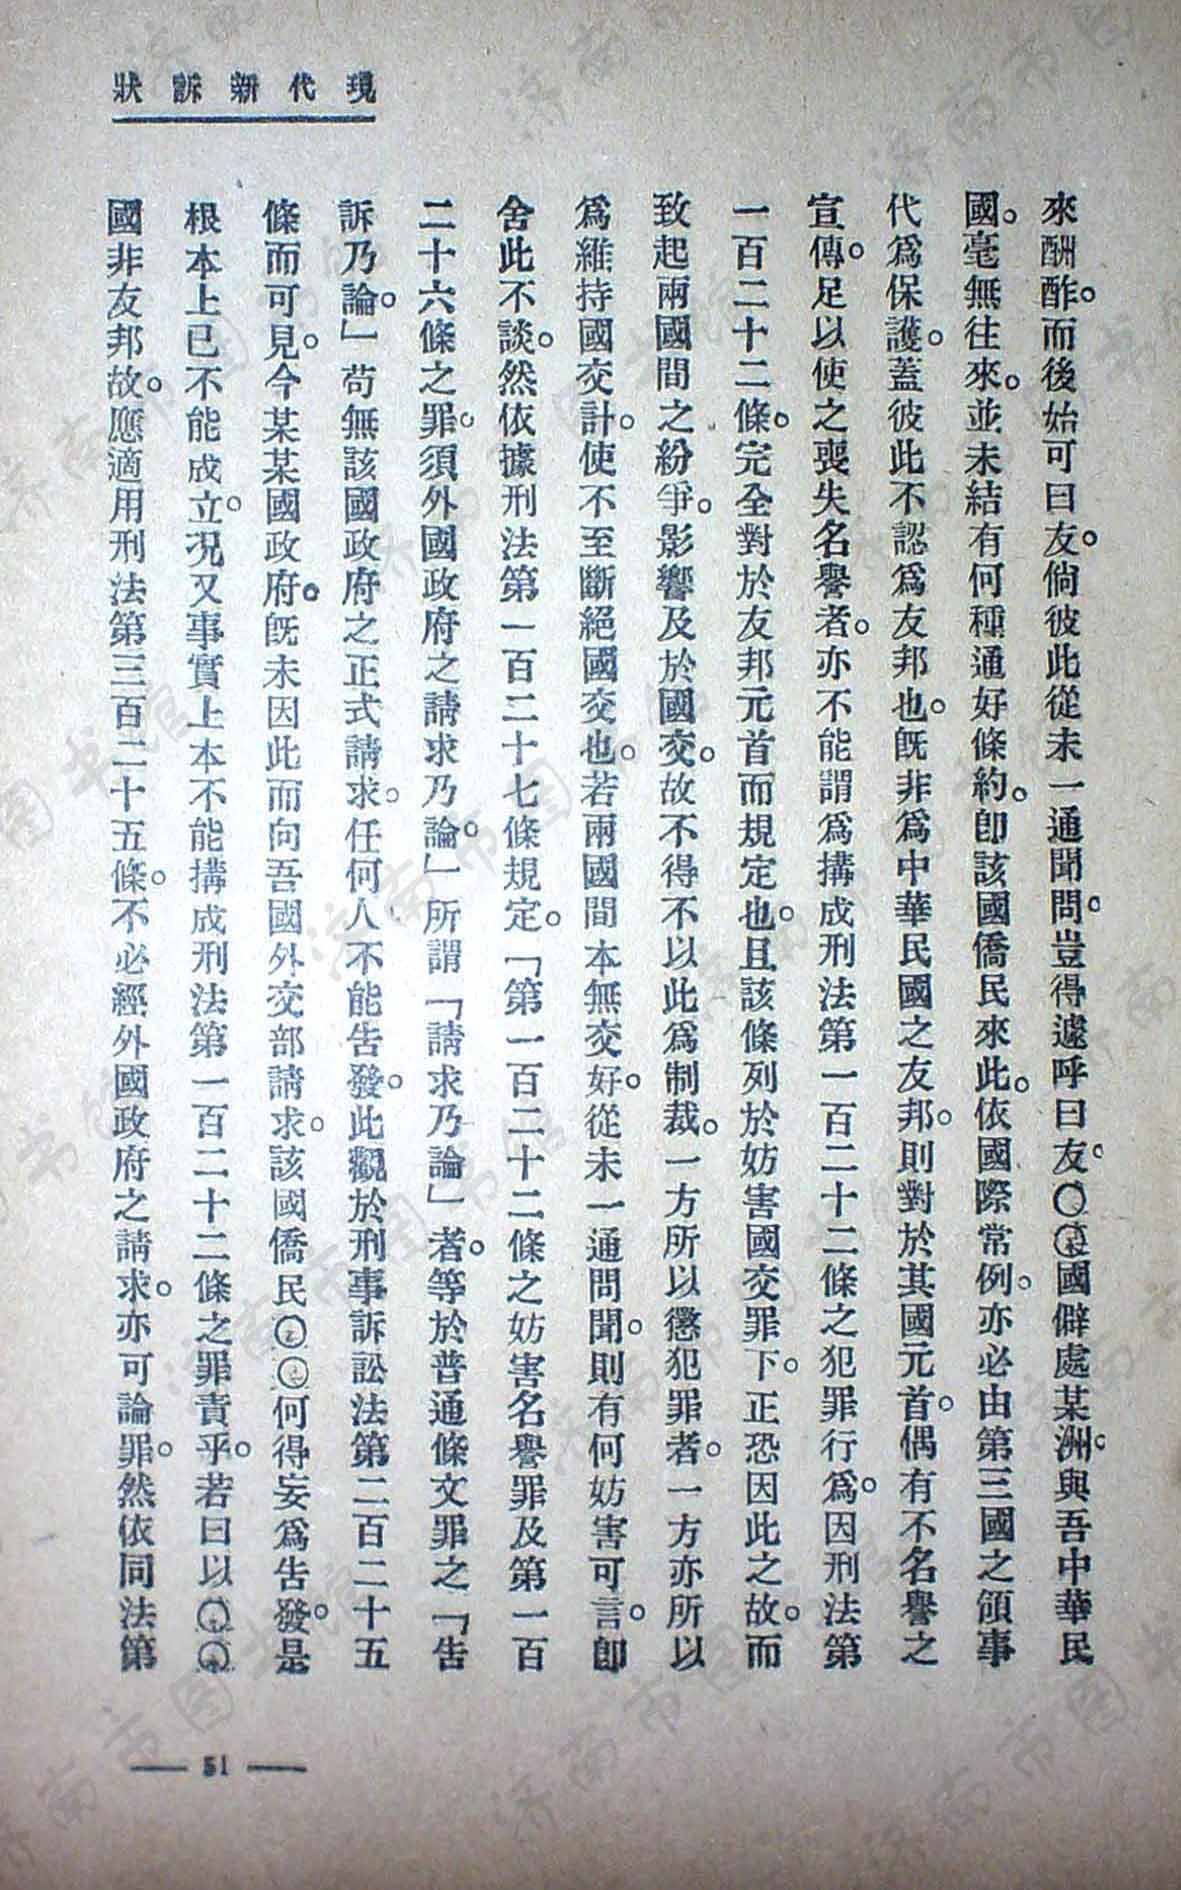 現代新訴狀
來酬酢。而後始可曰友。倘彼此從未一通聞問。豈得遽呼曰友。〇〇國僻處某洲。與吾中華民
國。毫無往來。並未結有何種通好條約。卽該國僑民來此。依國際常例。亦必由第三國之領事
代爲保護。蓋彼此不認爲友邦也。旣非爲中華民國之友邦。則對於其國元首。偶有不名譽之
宣傳。足以使之喪失名譽者。亦不能謂爲搆成刑法第一百二十二條之犯罪行爲。因刑法第
一百二十二條。完全對於友邦元首而規定也。且該條列於妨害國交罪下。正恐因此之故。而
致起兩國間之紛爭。影響及於國交。故不得不以此爲制裁。一方所以懲犯罪者。一方亦所以
爲維持國交計。使不至斷絕國交也。若兩國間本無交好。從未一通問聞。則有何妨害可言。卽
舍此不談。然依據刑法第一百二十七條規定。「第一百二十二條之妨害名譽罪及第一百
二十六條之罪。須外國政府之請求乃論。」所謂「請求乃論」者。等於普通條文罪之「告
訴乃論。」苟無該國政府之正式請求。任何人不能告發。此觀於刑事訴訟法第二百二十五
條而可見。今某某國政府。旣未因此而向吾國外交部請求。該國僑民〇〇何得妄爲告發。是
根本上已不能成立。況又事實上本不能搆成刑法第一百二十二條之罪責乎。若曰以〇〇
國非友邦故。應適用刑法第三百二十五條。不必經外國政府之請求。亦可論罪。然依同法第
— 51 —
济南市图书馆